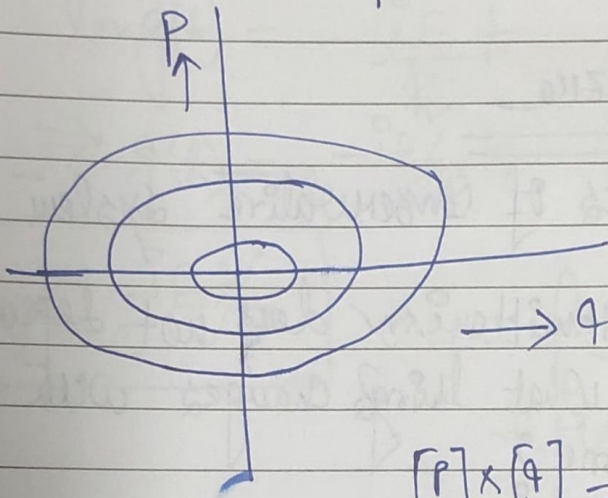 P
↑
→ q
[P] × [q] =